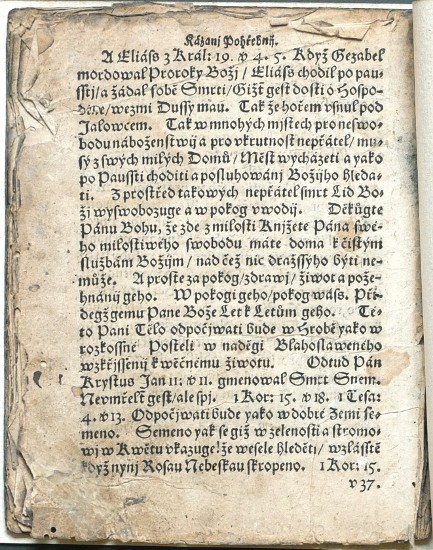 Kázanj Pohřebnij.
A Eliáss 3 Král: 19. v 4. 5. Když Gezabel
mordowal Proroky Božj / Eliáss chodil po pau-
sstj / a žádal sobě Smrti / Gižť gest dosti ó Hospo-
dine / wezmi Dussy mau. Tak že hořem vsnul pod
Jalowcem. Tak w mnohých mjstech pro neswo-
bodu náboženstwij a pro vkrutnost nepřátel / mu-
sý z swých milých Domů / Měst wycházeti a yako
po Paussti choditi a posluhowánj Božijho hleda-
ti. Z prostřed takowých nepřátel smrt Lid Bo-
žij wyswobozuge a w pokog vwodij. Děkůgte
Pánu Bohu, že zde z milosti Knjžete Pána swé-
ho milostiwého swobodu máte doma k čistým
službám Božijm / nad čež nic dražssýho býti ne-
může. A proste za pokog / zdrawj / žiwot a pože-
hnánij geho. W pokogi geho / pokog wáss. Při-
degž gemu Pane Bože Let k Letům geho. Té-
to Panj Tělo odpočjwati bude w Hrobě yako w
rozkossné Posteli w naděgi Blahoslaweného
wzkřjssěnij k wěčnému žiwotu. Odtud Pán
Krystus Jan 11: v 11. gmenowal Smrt Snem.
Nevmřelť gest / ale spj. 1 Kor: 15. v 18. 1 Tesa:
4. v 13. Odpočjwati bude yako w dobré Zemi se-
meno. Semeno yak se giž w zelenosti a stromo-
wj w Kwětu vkazuge! že wesele hleděti / wzlásstě
když nynj Rosau Nebeskau skropeno. 1 Kor: 15.
v 37.